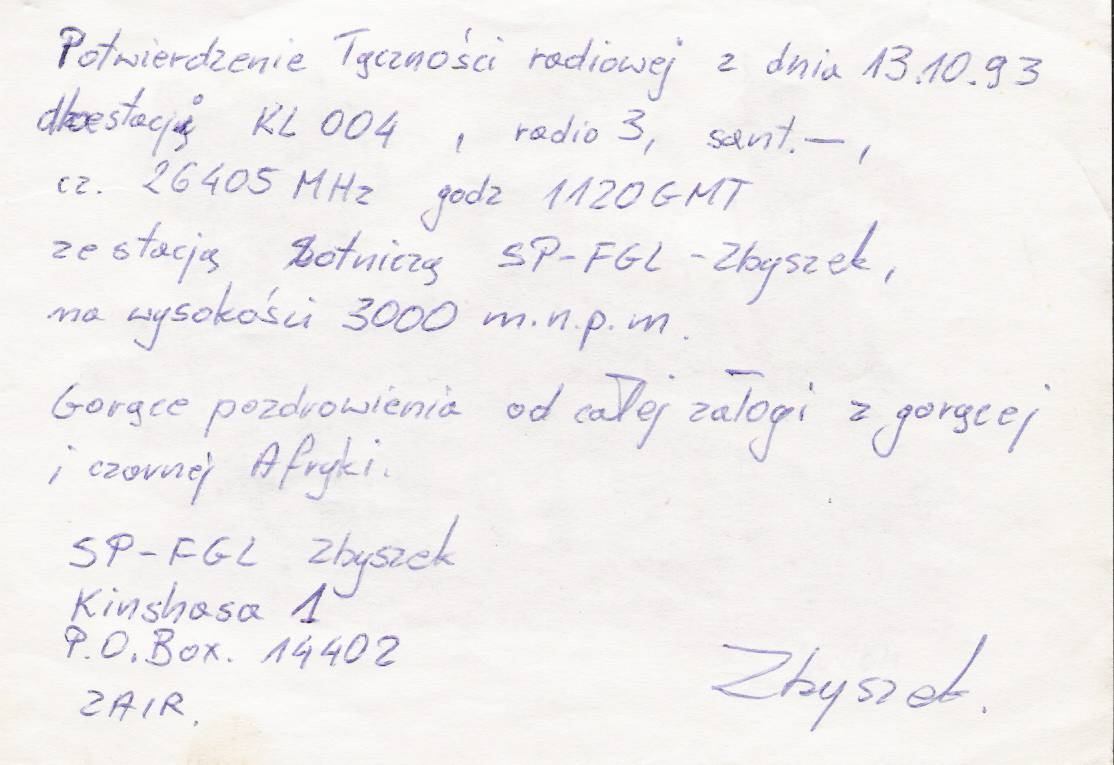 Potwierdzenie Tączności radiowej z dnia 13.10.93
stacją KL 004 , radio 3, sant. — ,
cz. 26405 MHz godz 1120 GMT
ze stacją lotniczą SP-FGL - Zbyszek,
na wysokości 3000 m.n.p.m.
Gorące pozdrowienia od całej załogi z gorącej
i czarnej Afryki.
SP-FGL Zbyszek
Kinshasa 1
P.O.Box. 14402
ZAIR.
Zbyszek.